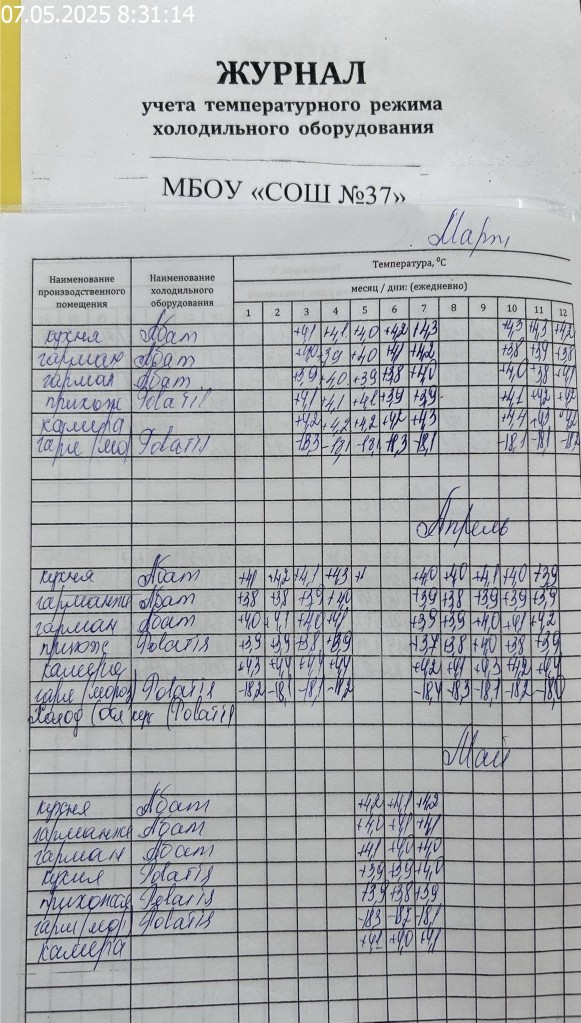 07.05.2025 8:31:14
ЖУРНАЛ
учета температурного режима
холодильного оборудования
МБОУ «СОШ №37»
Март
Наименование производственного помещения Наименование холодильного оборудования Температура, ⁰С
месяц / дни: (ежедневно)
1 2 3 4 5 6 7 8 9 10 11 12
кухня Абат +4,1 +4,1 +4,0 +4,2 +4,3 +4,3 +4,3 +4,2
гарман Абат +40 +39 +40 +41 +42 +38 +39 +38
гарман Абат +3,9 +4,0 +39 +38 +40 +4,0 +38 +41
прихож Polaris +41 +4,1 +39 +39 +4,1 +42 +42
камера +4,2 +4,2 +4,2 +42 +43 +4,4 +42
гарм/мор Polaris -18,3 -18,1 -18,3 -18,1 -18,1 -18,1 -18,2
Апрель
кухня Абат +41 +4,2 +4,1 +4,3 +40 +40 +4,1 +40 +39
гарманж Абат +38 +38 +39 +40 +39 +38 +39 +39 +3,9
гарман Абат +40 +4,1 +40 +41 +39 +39 +40 +41 +42
прихож Polaris +3,9 +39 +38 +39 +37 +38 +40 +38 +39
камера +43 +44 +44 +44 +42 +41 +4,3 +4,2 +44
гарм/мороз Polaris -18,2 -18,1 -18,1 -18,2 -18,4 -18,3 -18,1 -18,2 -18,0
Холод (Polaris)
Май
кухня Абат +42 +4,1 +4,2
гарманж Абат +4,0 +41 +4,1
гарман Абат +41 +40 +40
кухня Polaris +39 +39 +40
прихожая Polaris +3,9 +38 +39
гарм/мор Polaris -18,3 -18,2 -18,1
камера +42 +40 +41